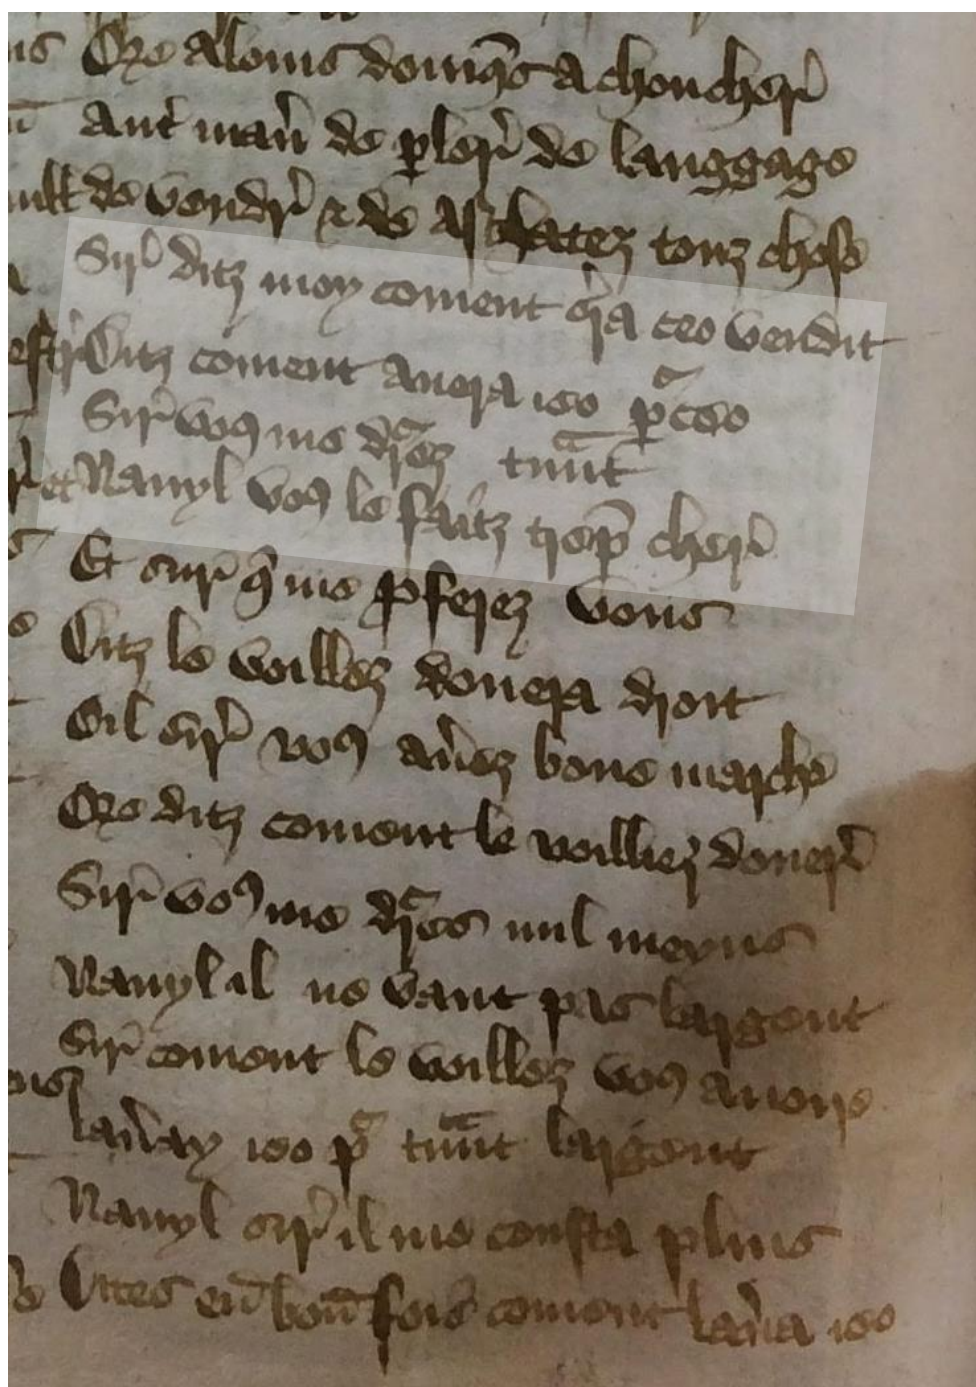 Ore alons domqes a choucher
Autr man de pler de langgage
de vendr & de achatez touz chose
Sir ditz moy coment sra ceo vendit
Ditz coment auera ieo pr ceo
Sir vos me drez tant
Nanyl vos le faitz trop cher
Et sur q me profrez vous
Ditz le voillez donera droit
Oil sir vos auez bone marche
Ore ditz coment le voilliez doner
Sir vos me dres nul meyns
Nanyl il ne vaut pas largent
Sir coment le voillez vos auoir
lauray ieo pr tant largent
Nanyl sir il me cousta pluis
Dites en bon fois coment lauera ieo